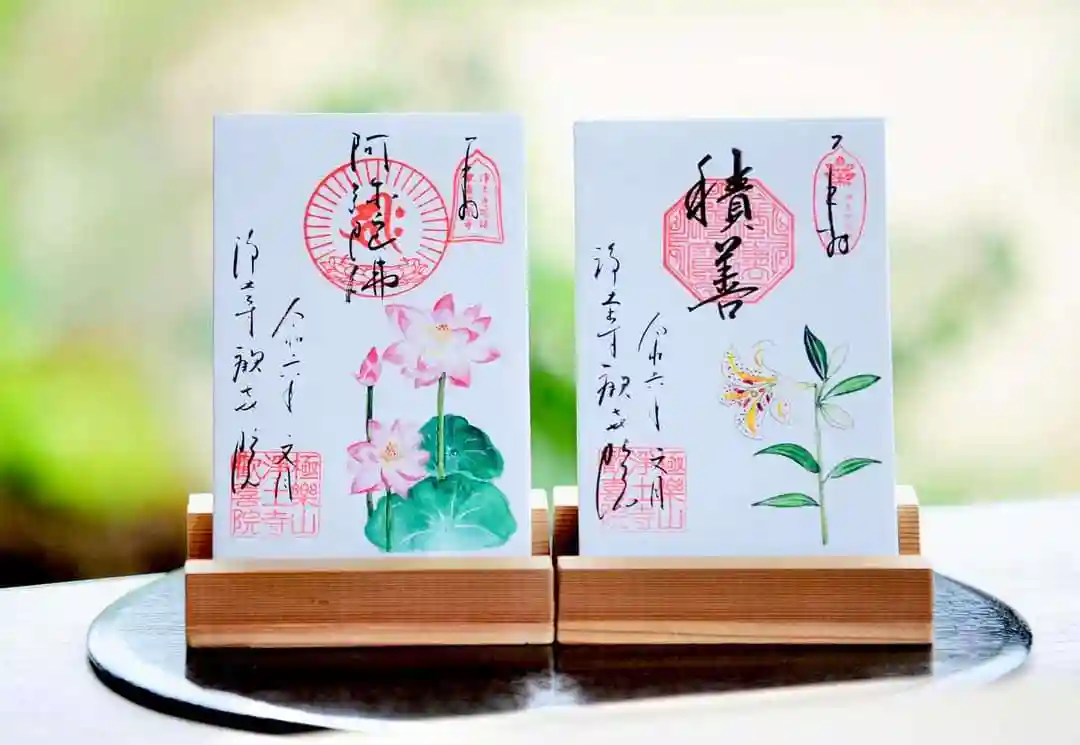 奉拝
阿弥陀佛
令和六年 文月
浄土寺 歓喜院
極樂山
淨土寺
歡喜院
奉拝
積善
令和六年 文月
浄土寺 歓喜院
極樂山
淨土寺
歡喜院